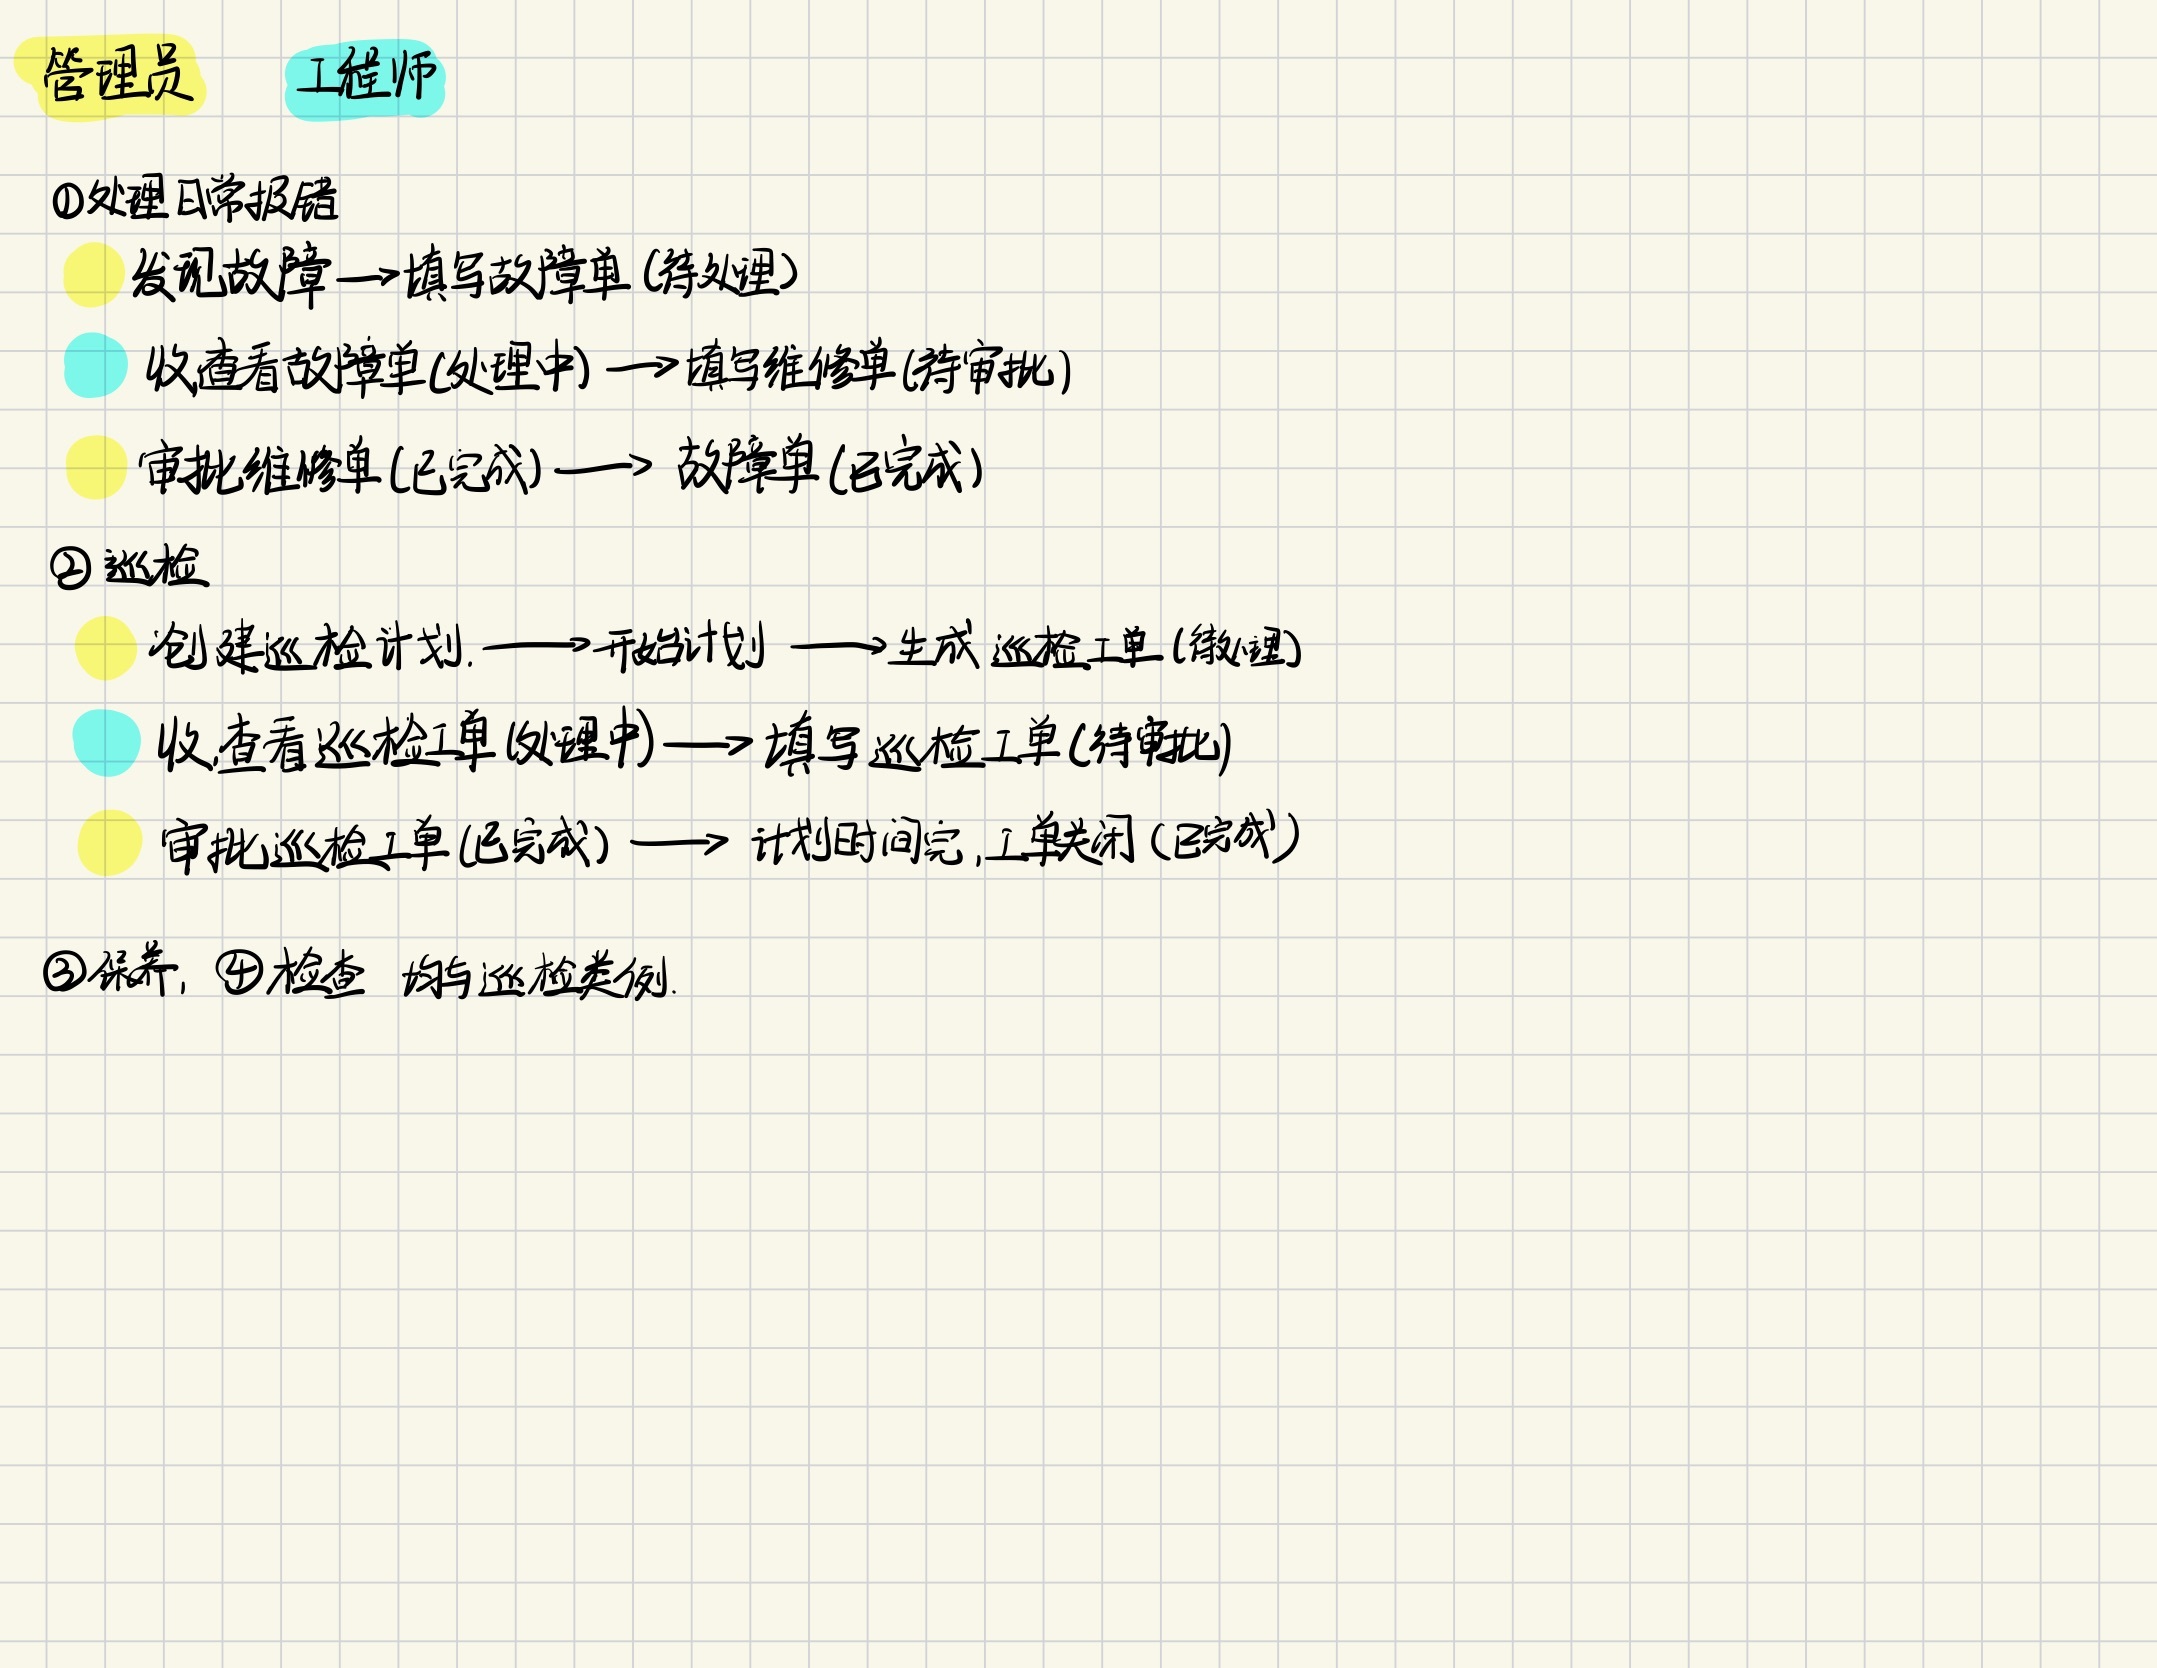 管理员 工程师
①处理日常报错
发现故障→填写故障单(待处理)
收,查看故障单(处理中)→填写维修单(待审批)
审批维修单(已完成)→故障单(已完成)
②巡检
创建巡检计划.→开始计划→生成巡检工单(待处理)
收,查看巡检工单(处理中)→填写巡检工单(待审批)
审批巡检工单(已完成)→计划时间完,工单关闭(已完成)
③保养,④检查 均与巡检类例.